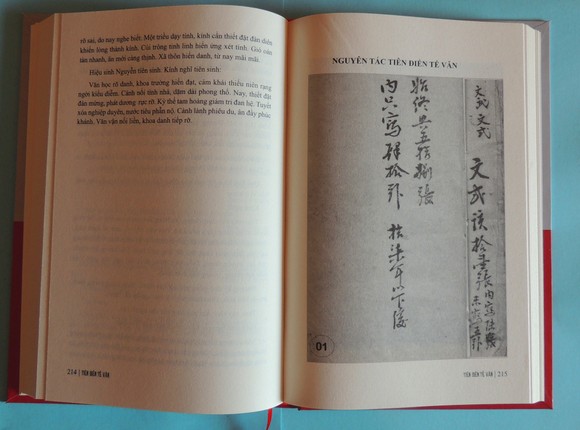 rỡ sai, do nay nghe biết: Một triều dạy tính, kính cẩn thiết đặt đàn diên
khiến lòng thành kính. Cúi trông tinh linh hiển ứng xét tình. Giỏi cầm
tàn nhanh, ăn mới càng thịnh. Xã thôn hiển danh, từ nay mãi mãi.
Hiệu sinh Nguyễn tiên sinh: Kính nghĩ tiên sinh:
Văn học rỡ danh, khoa trường hiển đạt, cảm khái thiếu niên rạng
ngời kiều diễm. Cảnh nổi tính nhà, dặm dài phong thổ. Nay, thiết đặt
đàn mừng, phải dương rực rỡ. Kỳ thế tam hoàng giám tri đan hệ. Tuyết
xóa nghiệp duyên, nước tiêu phẫn nộ. Cánh lành phiêu du, ân đầy phúc
khánh. Văn vận nối liền, khoa danh tiếp rỡ.
214 | TIÊN ĐIỀN TẾ VĂN
NGUYỄN TÁC TIÊN ĐIỀN TẾ VĂN
文武該拾
始終共五拾捌張
內只寫肆拾
柒年以下後
01
TIÊN ĐIỀN TẾ VĂN | 215